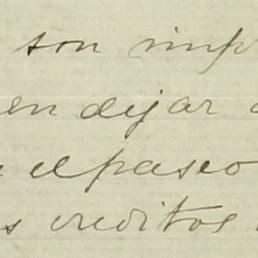 son imp
en dejar
el paseo
s creditos